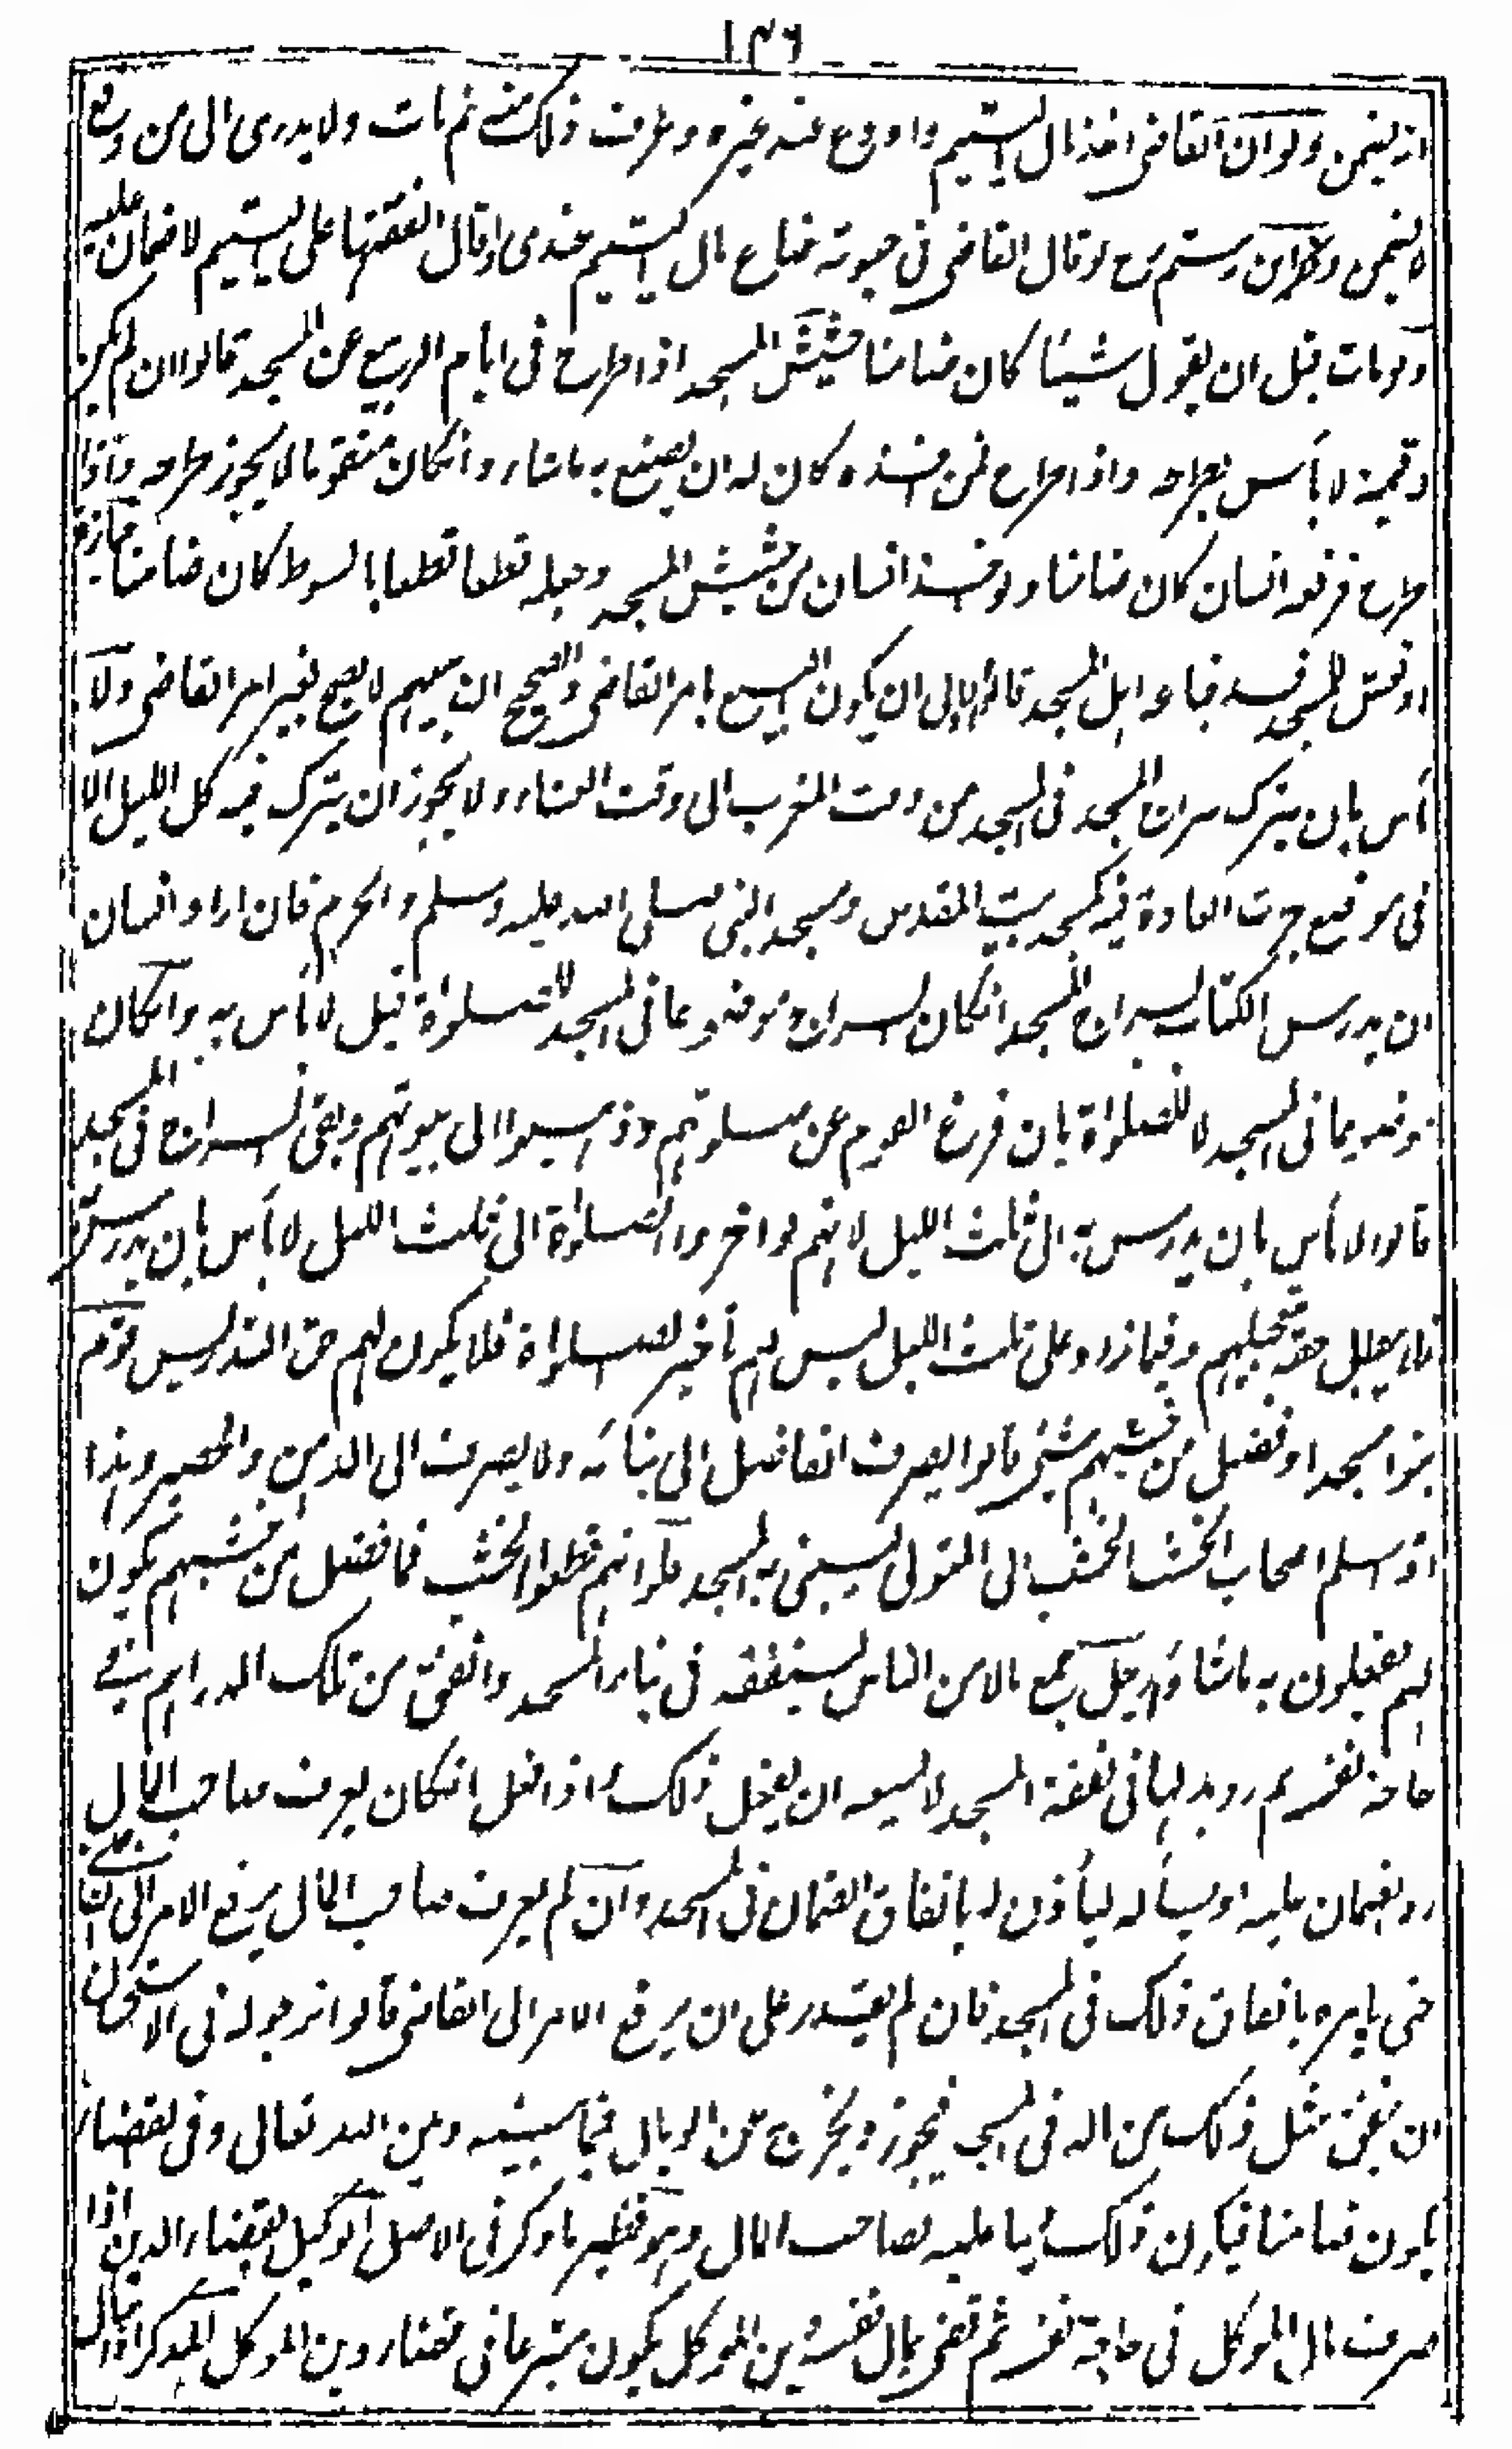 ١٣٦
انه يضمن ولو ان القاضى اخذ مال اليتيم واودع عند غيره وعرف ذلك منه ثم مات ولا يدرى الى من دفع
لا يضمن وذكر ابن رستم رح لو قال القاضى فى حيوته ضاع مال اليتيم عندى او قال انفقتها على اليتيم لا ضمان عليه
ولو مات قبل ان يقول شيئا كان ضامنا حشيش المسجد اذا طرح فى ايام الربيع عن المسجد قالوا ان لم يكن
له قيمة لا بأس بطرحه واذا طرح فمن اخذه كان له ان يصنع به ما شاء وانكان متقوما لا يجوز طرحه واذا
طرح فرفعه انسان كان ضامنا ولو اخذ انسان من حشيش المسجد وجعله قطعا قطعا بالسوط كان ضامنا جنازة
او نعش المسجد فسد فباعه اهل المسجد قالوا الاولى ان يكون البيع بامر القاضى والصحيح ان بيعهم لا يصح بغير امر القاضى ولا
بأس بان يترك سراج المسجد فى المسجد من وقت المغرب الى وقت العشاء ولا يجوز ان يترك فيه كل الليل الا
فى موضع جرت العادة فيه كمسجد بيت المقدس ومسجد النبى صلى الله عليه وسلم والحرم فان اراد انسان
ان يدرس الكتاب بسراج المسجد انكان السراج موضوعا فى المسجد للصلوٰة قيل لا بأس به وانكان
موضوعا فى المسجد لا للصلوٰة بان فرغ القوم عن صلوتهم وذهبوا الى بيوتهم وبقى السراج فى المسجد
قالوا لا بأس بان يدرس به الى ثلث الليل لانهم لو اخروا الصلوٰة الى ثلث الليل لا بأس بان يدرس به
فلا يبطل حقه بتعجيلهم وفيما زاد على ثلث الليل ليس لهم تأخير الصلوٰة فلا يكون لهم حق التدريس قوم
بنوا مسجدا وفضل من خشبهم شئ قالوا يصرف الفاضل الى بنائه ولا يصرف الى الدهن والحصير وهذا
اذا سلم اصحاب الخشب الخشب الى المتولى ليبنى به المسجد فلو انهم قطعوا الخشب فما فضل من خشبهم يكون
لهم يفعلون به ما شاؤا رجل جمع مالا من الناس لينفقه فى بناء المسجد وانفق من تلك الدراهم فى
حاجة نفسه ثم رد بدلها فى نفقة المسجد لا يسعه ان يفعل ذلك واذا فعل انكان يعرف صاحب المال
رد الضمان عليه او يسأله ليأذن له بانفاق الضمان فى المسجد وان لم يعرف صاحب المال يرفع الامر الى القاضى
حتى يامره بانفاق ذلك فى المسجد فان لم يقدر على ان يرفع الامر الى القاضى قالوا نرجو له فى الاستحسان
ان ينفق مثل ذلك من ماله فى المسجد فيجوز ويخرج عن الوبال فيما بينه وبين الله تعالى وفى القضاء
يكون ضامنا فيكون ذلك دينا عليه لصاحب المال وهو نظير ما ذكر فى الاصل الوكيل بقضاء الدين اذا
صرف مال الموكل فى حاجة نفسه ثم قضى بمال نفسه دين الموكل يكون متبرعا فى قضاء دين الموكل